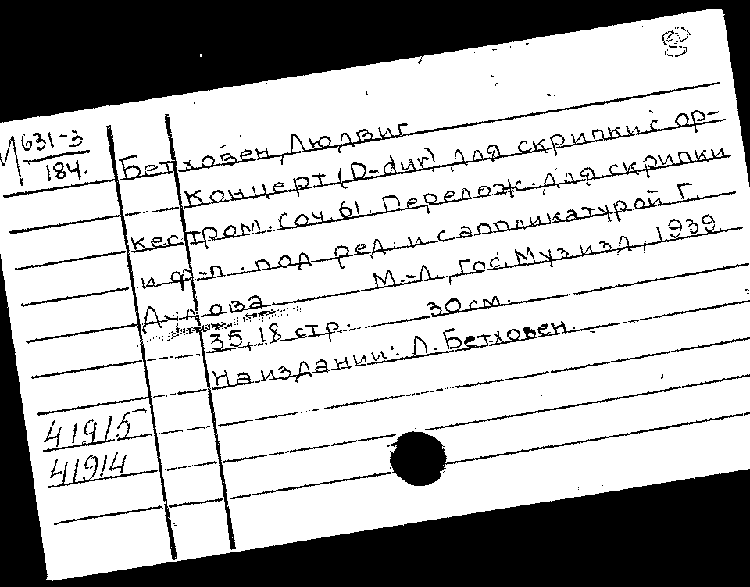 М631-3
184.
Бетховен, Людвиг
Концерт (D-dur) для скрипки с ор-
кестром. Соч. 61. Перелож. для скрипки
и ф-п. под ред. и с аппликатурой Г.
М.-Л., Гос. Муз. изд., 1939
35, 18 стр. 30 см.
На издании: Л. Бетховен.
41915
41914